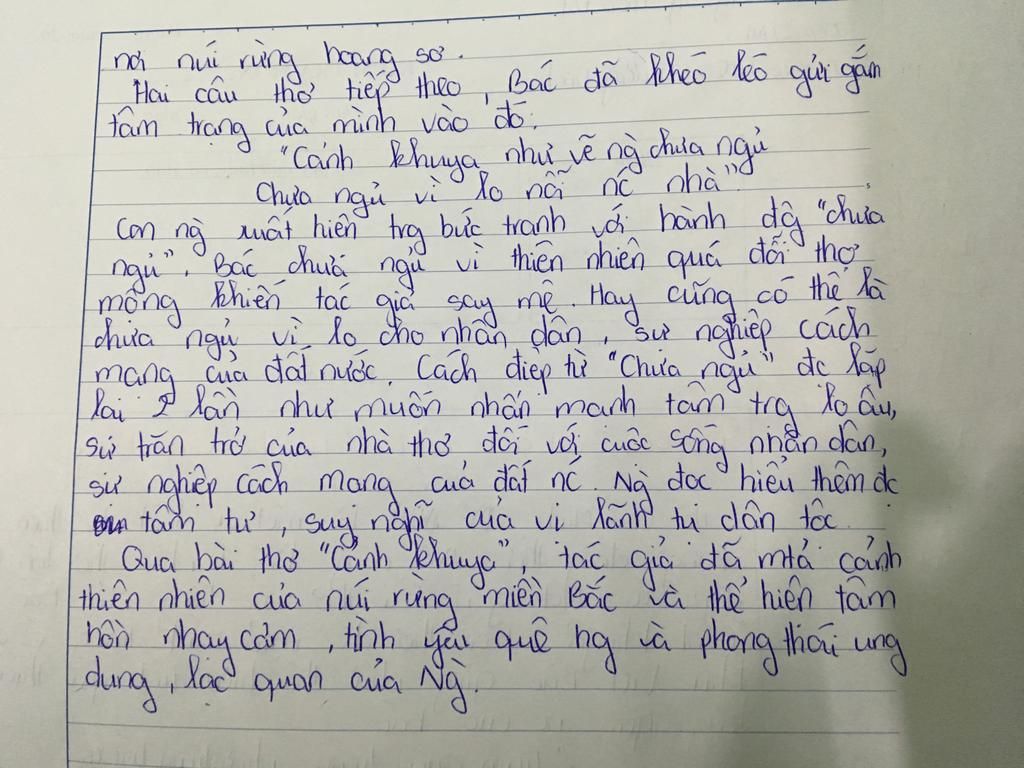 nơi núi rừng hoang sơ.
Hai câu thơ tiếp theo, Bác đã khéo léo gửi gắm
tâm trạng của mình vào đó:
"Cảnh khuya như vẽ ng chưa ngủ
Chưa ngủ vì lo nỗi nc nhà"
Con ng xuất hiện trg bức tranh với hành độg "chưa
ngủ". Bác chưa ngủ vì thiên nhiên quá đỗi thơ
mộng khiến tác giả say mê. Hay cũng có thể là
chưa ngủ vì lo cho nhân dân, sự nghiệp cách
mạng của đất nước. Cách điệp từ "Chưa ngủ" đc lặp
lại 2 lần như muốn nhấn mạnh tâm trg lo âu,
sự trăn trở của nhà thơ đối với cuộc sống nhân dân,
sự nghiệp cách mạng của đất nc. Ng đọc hiểu thêm đc
tâm tư, suy nghĩ của vị lãnh tụ dân tộc.
Qua bài thơ "Cảnh khuya", tác giả đã mtả cảnh
thiên nhiên của núi rừng miền Bắc và thể hiện tâm
hồn nhạy cảm, tình yêu quê hg và phong thái ung
dung, lạc quan của Ng.